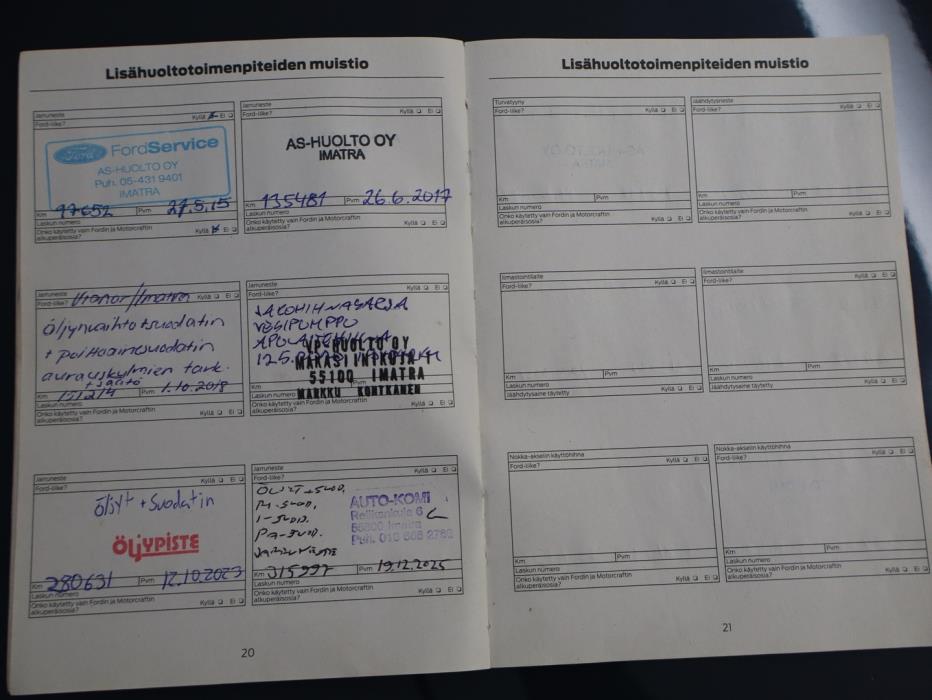 Lisähuoltotoimenpiteiden muistio
Jarruneste
Ford-liike? Kyllä Ei
Ford FordService
AS-HUOLTO OY
Puh. 05-431 9401
IMATRA
Km 77652 Pvm 27.5.15
Laskun numero
Onko käytetty vain Fordin ja Motorcraftin
alkuperäisosia? Kyllä Ei
Jarruneste
Ford-liike? Kyllä Ei
AS-HUOLTO OY
IMATRA
Km 135481 Pvm 26.6.2017
Laskun numero
Onko käytetty vain Fordin ja Motorcraftin
alkuperäisosia? Kyllä Ei
Jarruneste
Ford-liike? Vianor/Imatra Kyllä Ei
öljynvaihto+suodatin
+ polttoainesuodatin
aurauskulmien tark.
+ säätö
Km 151214 Pvm 1.10.2018
Laskun numero
Onko käytetty vain Fordin ja Motorcraftin
alkuperäisosia? Kyllä Ei
Jarruneste
Ford-liike? Kyllä Ei
JAKOHIHNASARJA
VESIPUMPPU
APULAITEHIHNA
VP-HUOLTO OY
MAKASIINIKUJA 1
55100 IMATRA
MARKKU KONTKANEN
Km Pvm
Laskun numero
Onko käytetty vain Fordin ja Motorcraftin
alkuperäisosia? Kyllä Ei
Jarruneste
Ford-liike? Kyllä Ei
Öljyt + Suodatin
ÖLJYPISTE
Km 280631 Pvm 12.10.2023
Laskun numero
Onko käytetty vain Fordin ja Motorcraftin
alkuperäisosia? Kyllä Ei
Jarruneste
Ford-liike? Kyllä Ei
ÖLJYT+SUOD.
R-SUOD.
I-SUOD.
PA-SUOD.
JARRUNESTE
AUTO-KOMI
Reilikonkuja 6
55800 Imatra
Km 315997 Pvm 19.12.2025
Laskun numero
Onko käytetty vain Fordin ja Motorcraftin
alkuperäisosia? Kyllä Ei
20
Lisähuoltotoimenpiteiden muistio
Turvatyyny
Ford-liike? Kyllä Ei
Km Pvm
Laskun numero
Onko käytetty vain Fordin ja Motorcraftin
alkuperäisosia? Kyllä Ei
Jäähdytysneste
Ford-liike? Kyllä Ei
Km Pvm
Laskun numero
Onko käytetty vain Fordin ja Motorcraftin
alkuperäisosia? Kyllä Ei
Ilmastointilaite
Ford-liike? Kyllä Ei
Km Pvm
Laskun numero
Jäähdytysaine täytetty
Ilmastointilaite
Ford-liike? Kyllä Ei
Km Pvm
Laskun numero
Jäähdytysaine täytetty
Nokka-akselin käyttöhihna
Ford-liike? Kyllä Ei
Km Pvm
Laskun numero
Onko käytetty vain Fordin ja Motorcraftin
alkuperäisosia? Kyllä Ei
Nokka-akselin käyttöhihna
Ford-liike? Kyllä Ei
Km Pvm
Laskun numero
Onko käytetty vain Fordin ja Motorcraftin
alkuperäisosia? Kyllä Ei
21